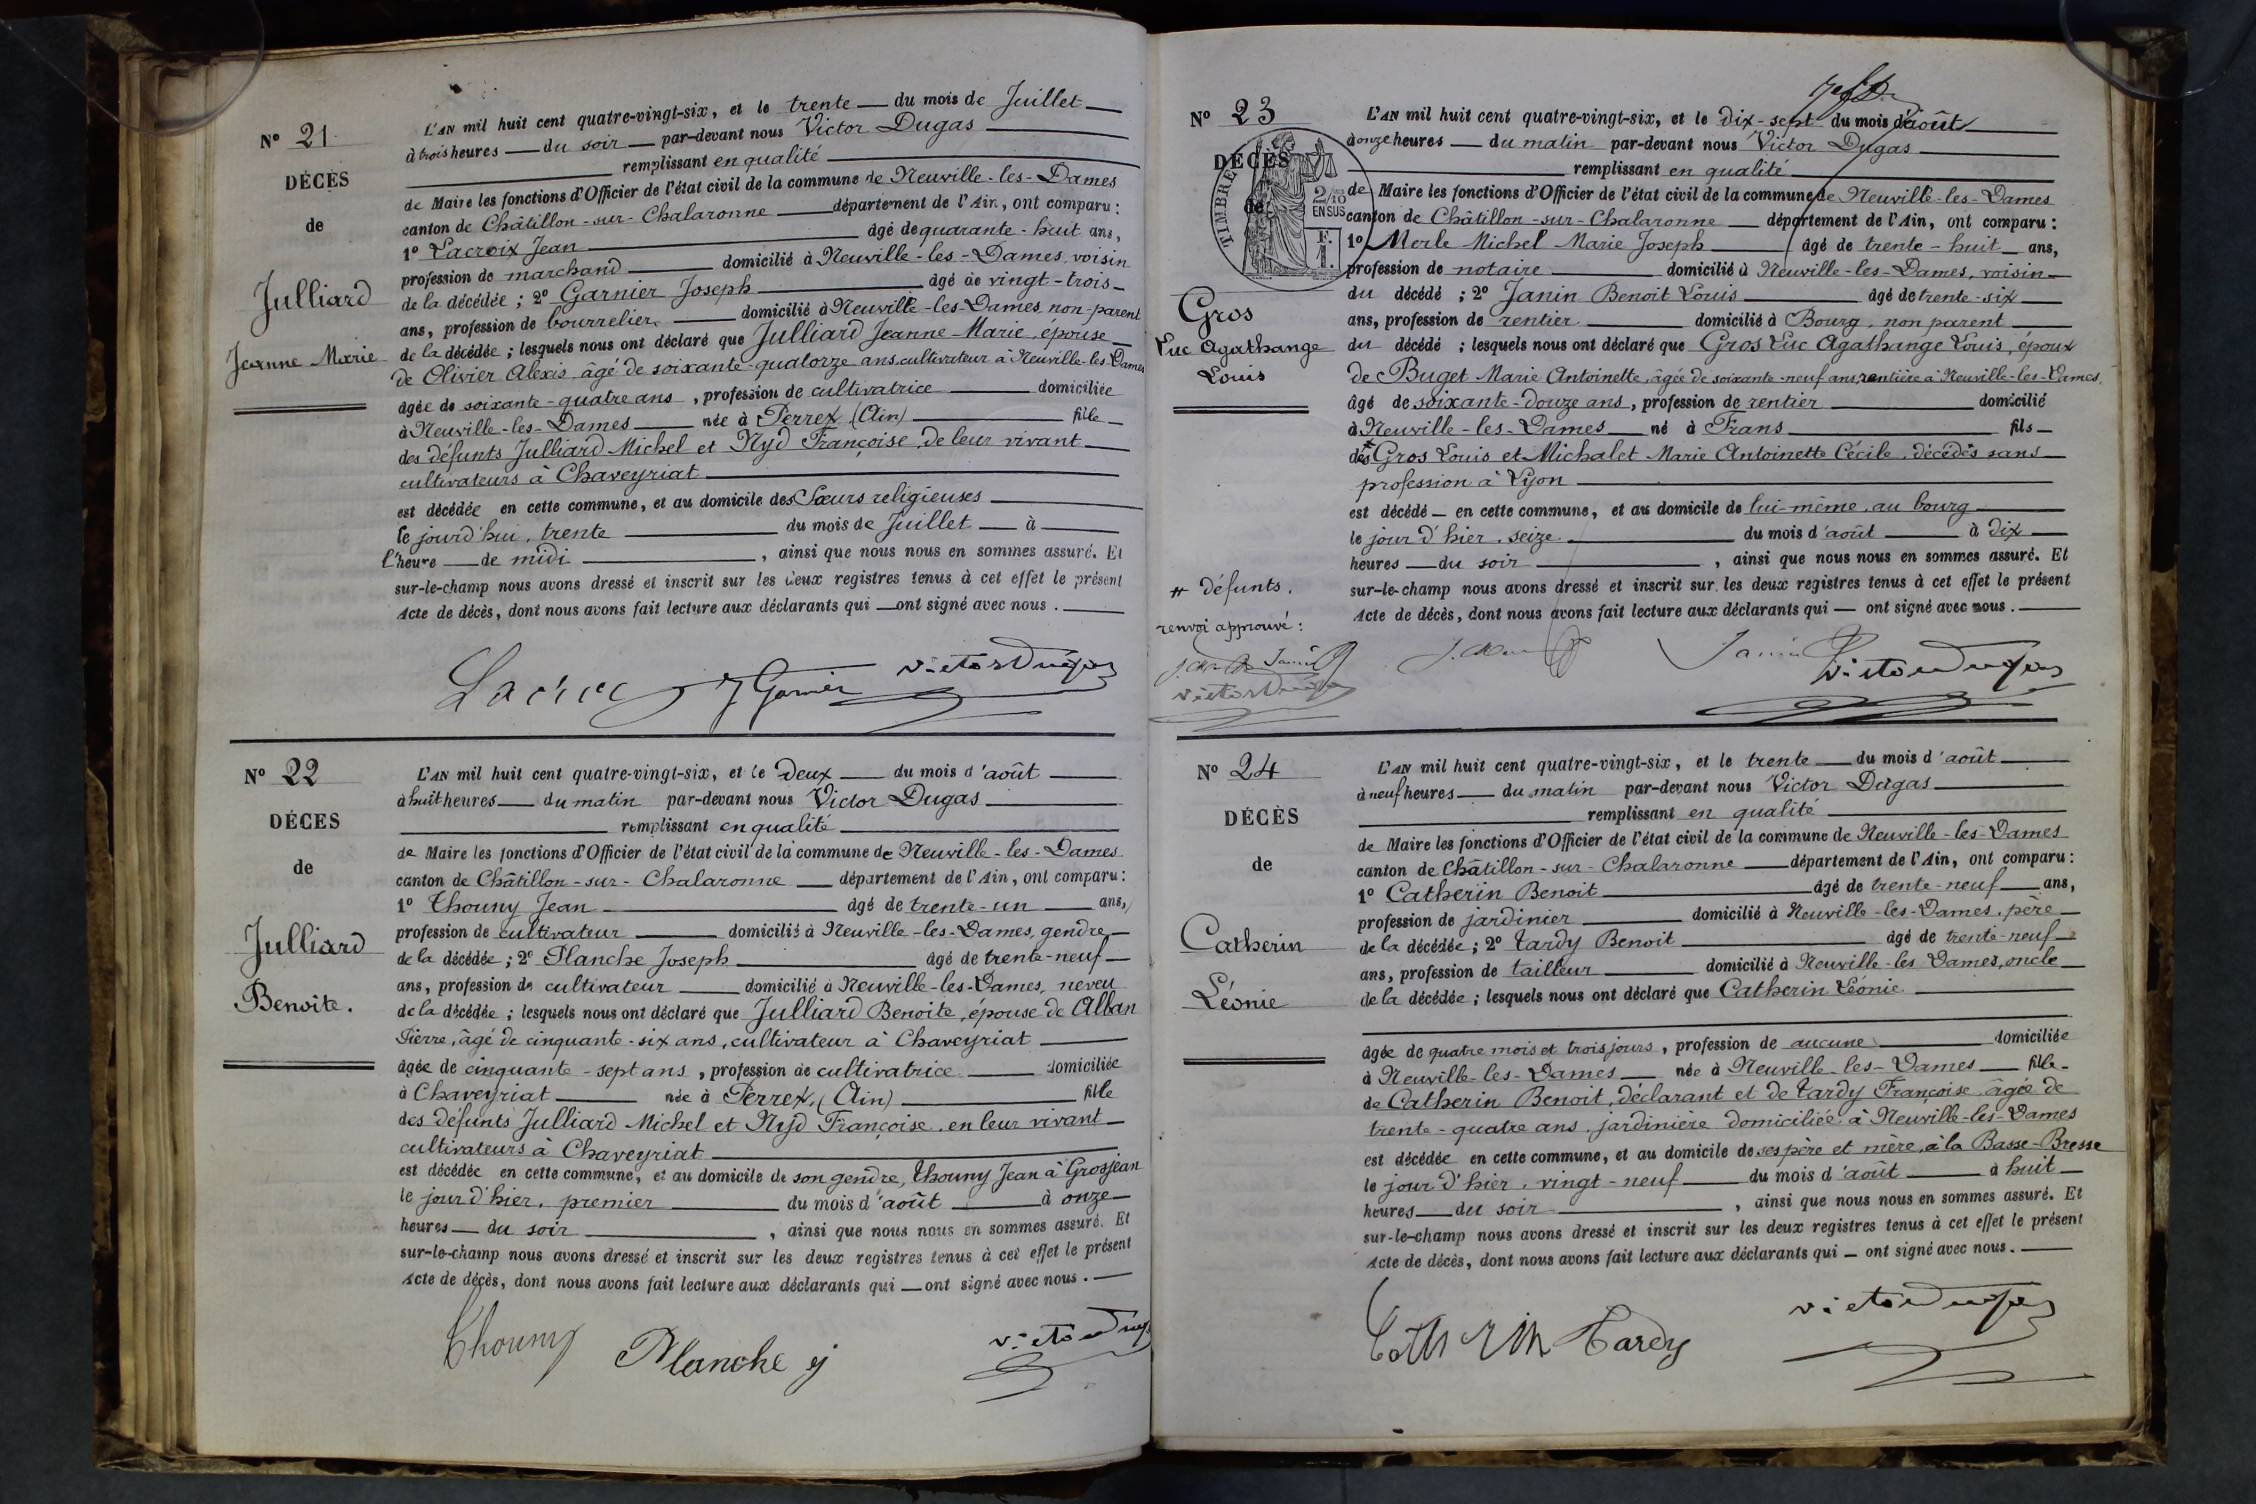 N° 21
DÉCÈS
de
Julliard
Jeanne Marie
L'AN mil huit cent quatre-vingt-six, et le trente du mois de Juillet
à trois heures du soir par-devant nous Victor Dugas
remplissant en qualité
de Maire les fonctions d'Officier de l'état civil de la commune de Neuville-les-Dames
canton de Châtillon-sur-Chalaronne département de l'Ain, ont comparu :
1° Lacroix Jean âgé de quarante-huit ans,
profession de marchand domicilié à Neuville-les-Dames, voisin
de la décédée ; 2° Garnier Joseph âgé de vingt-trois
ans, profession de bourrelier domicilié à Neuville-les-Dames, non-parent
de la décédée ; lesquels nous ont déclaré que Julliard Jeanne-Marie, épouse
de Olivier Alexis, âgé de soixante-quatorze ans, cultivateur à Neuville-les-Dames
âgée de soixante-quatre ans, profession de cultivatrice domiciliée
à Neuville-les-Dames née à Perrex (Ain) fille
des défunts Julliard Michel et Nyd Françoise, de leur vivant
cultivateurs à Chaveyriat
est décédée en cette commune, et au domicile des Sœurs religieuses
le jourd'hui, trente du mois de Juillet à
l'heure de midi, ainsi que nous nous en sommes assuré. Et
sur-le-champ nous avons dressé et inscrit sur les deux registres tenus à cet effet le présent
Acte de décès, dont nous avons fait lecture aux déclarants qui ont signé avec nous.
Lacroix J Garnier Victor Dugas
N° 22
DÉCÈS
de
Julliard
Benoite.
L'AN mil huit cent quatre-vingt-six, et le deux du mois d'août
à huit heures du matin par-devant nous Victor Dugas
remplissant en qualité
de Maire les fonctions d'Officier de l'état civil de la commune de Neuville-les-Dames
canton de Châtillon-sur-Chalaronne département de l'Ain, ont comparu :
1° Thouny Jean âgé de trente-un ans,
profession de cultivateur domicilié à Neuville-les-Dames, gendre
de la décédée ; 2° Planche Joseph âgé de trente-neuf
ans, profession de cultivateur domicilié à Neuville-les-Dames, neveu
de la décédée ; lesquels nous ont déclaré que Julliard Benoite, épouse de Alban
Pierre, âgé de cinquante-six ans, cultivateur à Chaveyriat
âgée de cinquante-sept ans, profession de cultivatrice domiciliée
à Chaveyriat née à Perrex, (Ain) fille
des défunts Julliard Michel et Nyd Françoise, en leur vivant
cultivateurs à Chaveyriat
est décédée en cette commune, et au domicile de son gendre, Thouny Jean à Grosjean
le jour d'hier, premier du mois d'août à onze
heures du soir, ainsi que nous nous en sommes assuré. Et
sur-le-champ nous avons dressé et inscrit sur les deux registres tenus à cet effet le présent
Acte de décès, dont nous avons fait lecture aux déclarants qui ont signé avec nous.
Thouny Planche j Victor Dugas
N° 23
DÉCÈS
de
TIMBRE
2/10
EN SUS
F.
1.
Gros
Luc Agathange
Louis
L'AN mil huit cent quatre-vingt-six, et le dix-sept du mois d'août
à onze heures du matin par-devant nous Victor Dugas
remplissant en qualité
de Maire les fonctions d'Officier de l'état civil de la commune de Neuville-les-Dames
canton de Châtillon-sur-Chalaronne département de l'Ain, ont comparu :
1° Merle Michel Marie Joseph âgé de trente-huit ans,
profession de notaire domicilié à Neuville-les-Dames, voisin
du décédé ; 2° Janin Benoit Louis âgé de trente-six
ans, profession de rentier domicilié à Bourg, non parent
du décédé ; lesquels nous ont déclaré que Gros Luc Agathange Louis, époux
de Buget Marie Antoinette, âgée de soixante-neuf ans, rentière à Neuville-les-Dames,
âgé de soixante-douze ans, profession de rentier domicilié
à Neuville-les-Dames né à Frans fils
des # Gros Louis et Michalet Marie Antoinette Cécile, décédés sans
profession à Lyon
est décédé en cette commune, et au domicile de lui-même, au bourg
le jour d'hier, seize du mois d'août à dix
heures du soir, ainsi que nous nous en sommes assuré. Et
sur-le-champ nous avons dressé et inscrit sur les deux registres tenus à cet effet le présent
Acte de décès, dont nous avons fait lecture aux déclarants qui ont signé avec nous.
# défunts.
renvoi approuvé :
Janin
Victor Dugas
Janin Victor Dugas
N° 24
DÉCÈS
de
Catherin
Léonie
L'AN mil huit cent quatre-vingt-six, et le trente du mois d'août
à neuf heures du matin par-devant nous Victor Dugas
remplissant en qualité
de Maire les fonctions d'Officier de l'état civil de la commune de Neuville-les-Dames
canton de Châtillon-sur-Chalaronne département de l'Ain, ont comparu :
1° Catherin Benoit âgé de trente-neuf ans,
profession de jardinier domicilié à Neuville-les-Dames, père
de la décédée ; 2° Tardy Benoit âgé de trente-neuf
ans, profession de tailleur domicilié à Neuville-les Dames, oncle
de la décédée ; lesquels nous ont déclaré que Catherin Léonie
âgée de quatre mois et trois jours, profession de aucune domiciliée
à Neuville-les-Dames née à Neuville-les-Dames fille
de Catherin Benoit, déclarant et de Tardy Françoise, âgée de
trente-quatre ans, jardinière domiciliée à Neuville-les-Dames
est décédée en cette commune, et au domicile de ses père et mère, à la Basse-Bresse
le jour d'hier, vingt-neuf du mois d'août à huit
heures du soir, ainsi que nous nous en sommes assuré. Et
sur-le-champ nous avons dressé et inscrit sur les deux registres tenus à cet effet le présent
Acte de décès, dont nous avons fait lecture aux déclarants qui ont signé avec nous.
Catherin Tardy Victor Dugas